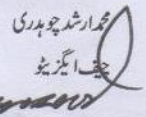 محمد ارشد چوہدری
چیف ایگزیٹو